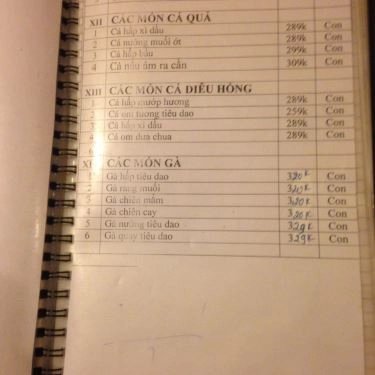 XII CÁC MÓN CÁ QUẢ
1 Cá hấp xì dầu 289k Con
2 Cá nướng muối ớt 289k Con
3 Cá hấp bầu 299k Con
4 Cá nấu ám ra cần 309k Con
XIII CÁC MÓN CÁ DIÊU HỒNG
1 Cá hấp mướp hương 289k Con
2 Cá om tương tiêu dao 259k Con
3 Cá hấp xì dầu 289k Con
4 Cá om dưa chua 289k Con
6
CÁC MÓN GÀ
1 Gà hấp tiêu dao 320k Con
2 Gà rang muối 320k Con
3 Gà chiên mắm 320k Con
4 Gà chiên cay 320k Con
5 Gà nướng tiêu dao 329k Con
6 Gà quay tiêu dao 329k Con